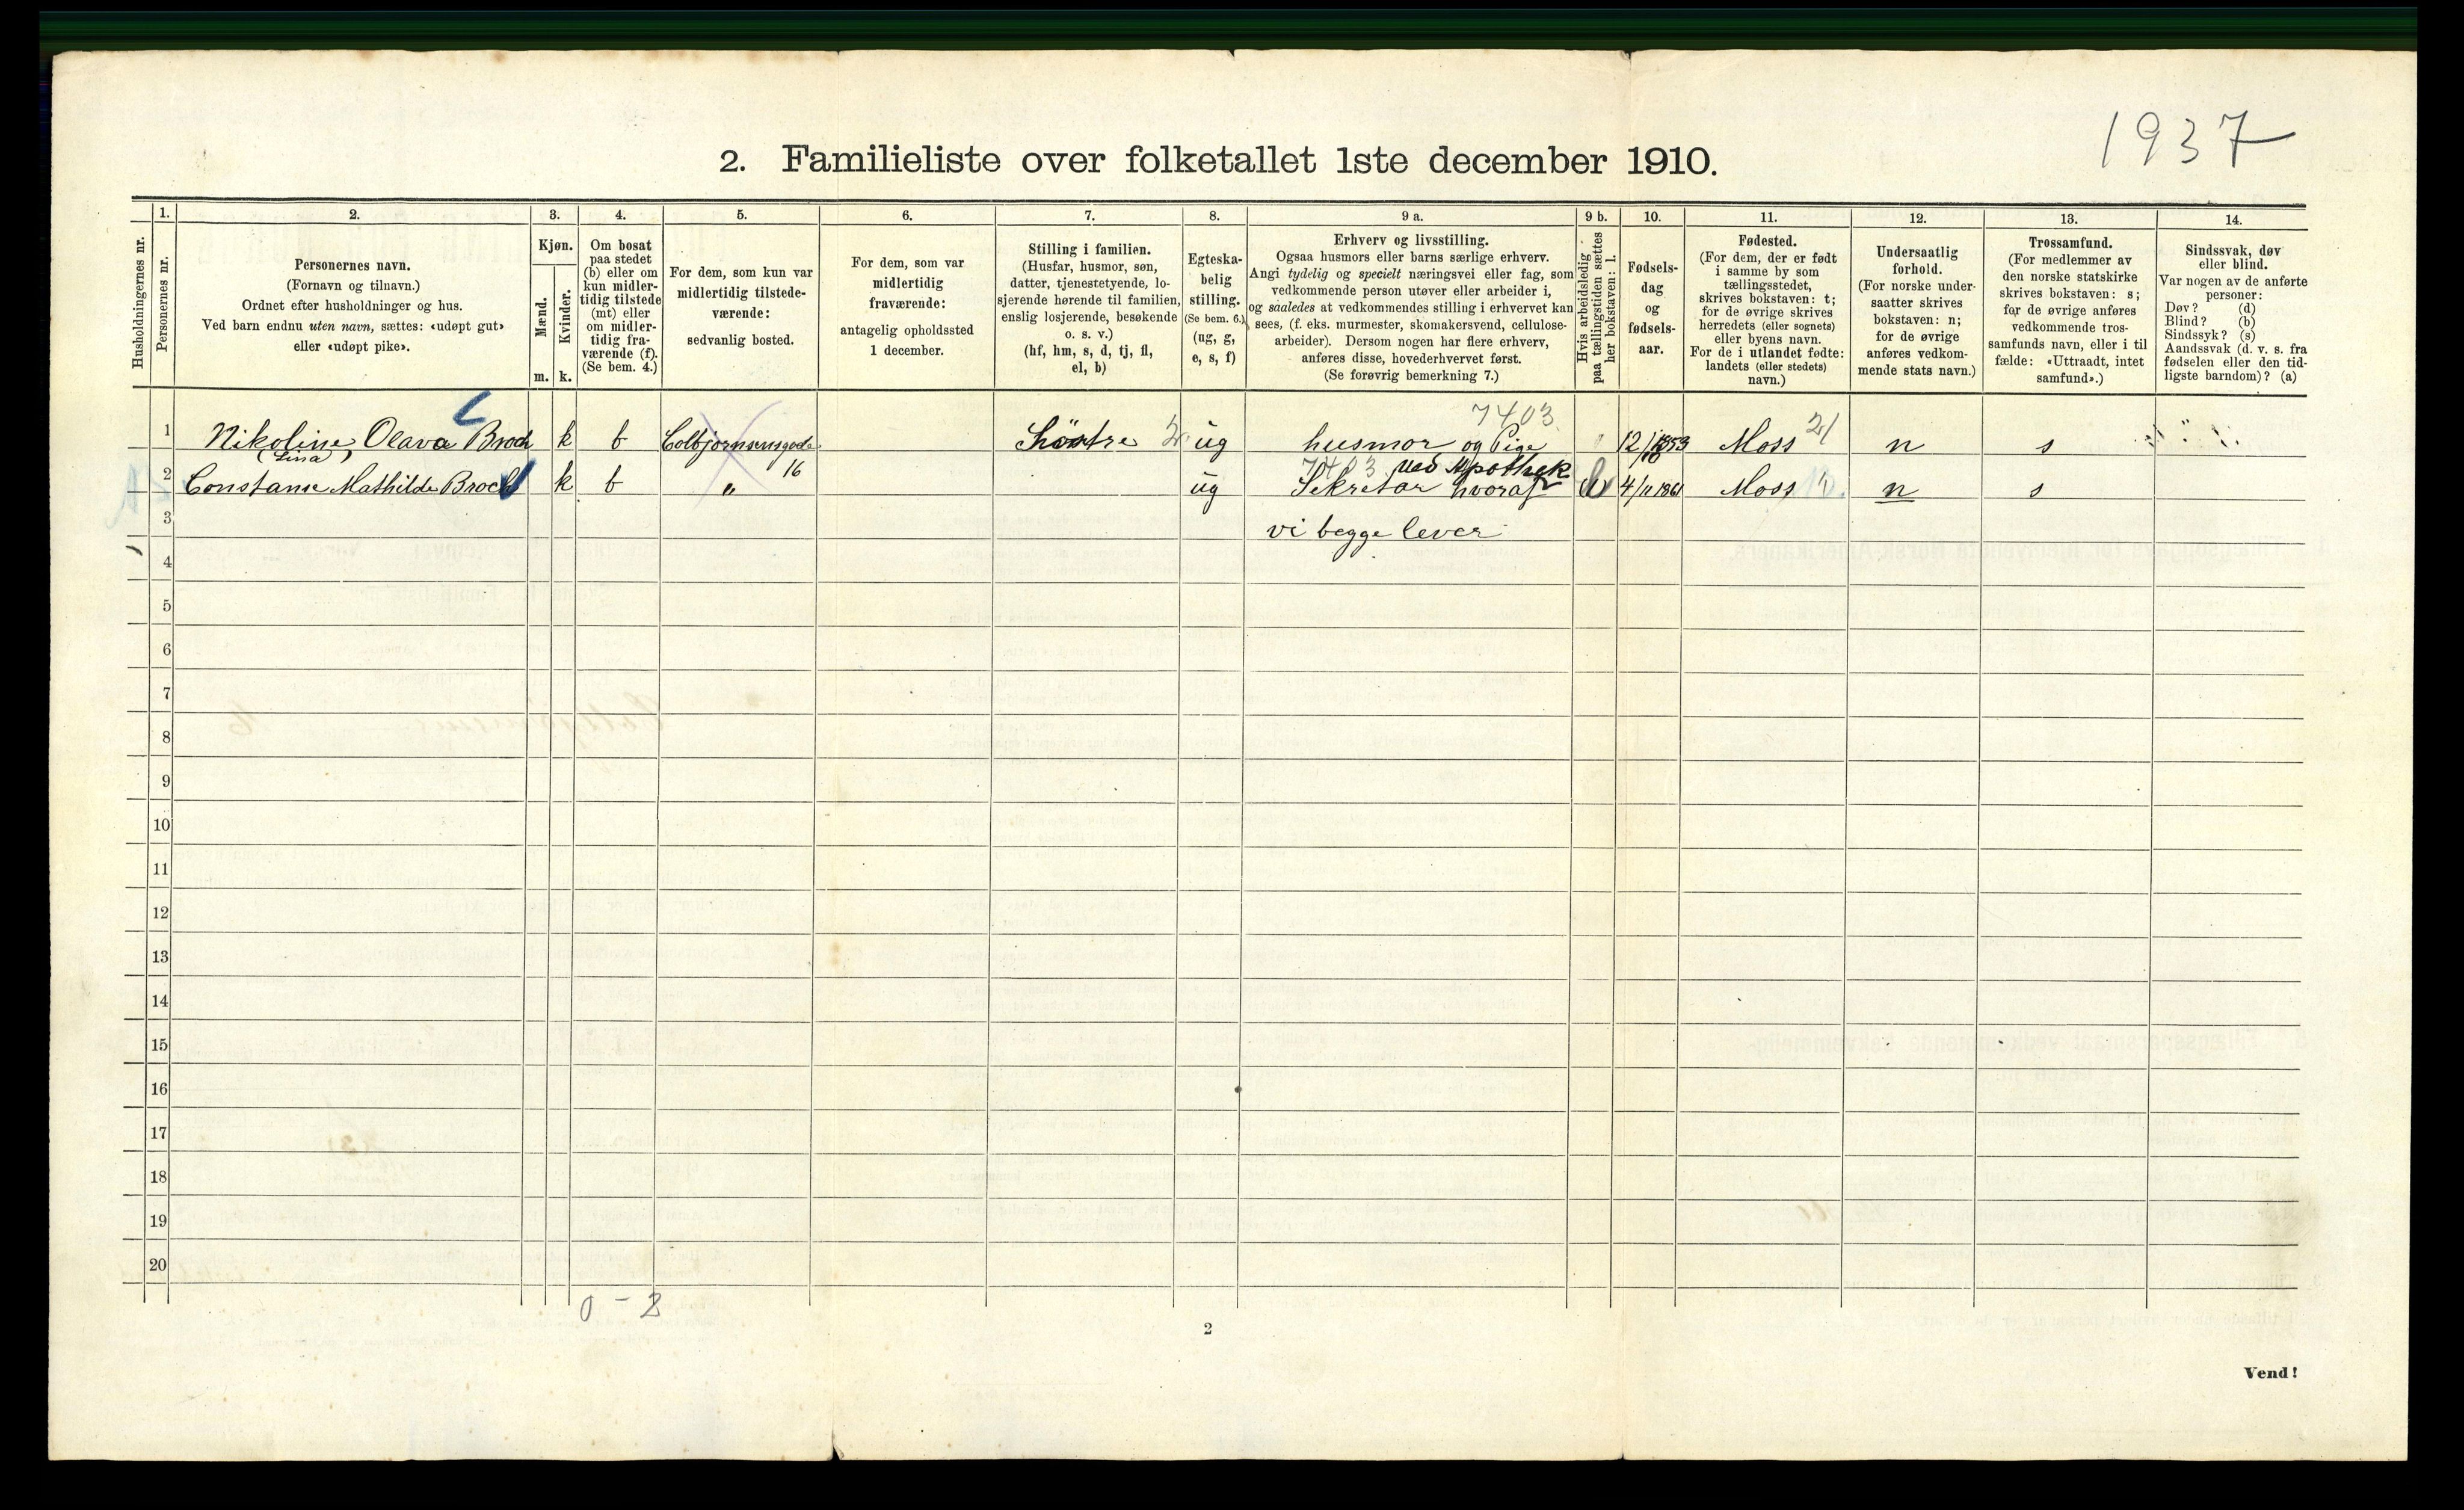 1937
2. Familieliste over folketallet 1ste december 1910.
Husholdningernes nr.
1.
Personernes nr.
2.
Personernes navn.
(Fornavn og tilnavn.)
Ordnet efter husholdninger og hus.
Ved barn endnu uten navn, sættes: «udøpt gut»
eller «udøpt pike».
3.
Kjøn.
Mænd.
Kvinder.
m. k.
4.
Om bosat
paa stedet
(b) eller om
kun midler-
tidig tilstede
(mt) eller
om midler-
tidig fra-
værende (f).
(Se bem. 4.)
5.
For dem, som kun var
midlertidig tilstede-
værende:
sedvanlig bosted.
6.
For dem, som var
midlertidig
fraværende:
antagelig opholdssted
1 december.
7.
Stilling i familien.
(Husfar, husmor, søn,
datter, tjenestetyende, lo-
sjerende hørende til familien,
enslig losjerende, besøkende
o. s. v.)
(hf, hm, s, d, tj, fl,
el, b)
8.
Egteska-
belig
stilling.
(Se bem. 6.)
(ug, g,
e, s, f)
9 a.
Erhverv og livsstilling.
Ogsaa husmors eller barns særlige erhverv.
Angi tydelig og specielt næringsvei eller fag, som
vedkommende person utøver eller arbeider i,
og saaledes at vedkommendes stilling i erhvervet kan
sees, (f. eks. murmester, skomakersvend, cellulose-
arbeider). Dersom nogen har flere erhverv,
anføres disse, hovederhvervet først.
(Se forøvrig bemerkning 7.)
9 b.
Hvis arbeidsledig
paa tællingstiden sættes
her bokstaven: l.
10.
Fødsels-
dag
og
fødsels-
aar.
11.
Fødested.
(For dem, der er født
i samme by som
tællingsstedet,
skrives bokstaven: t;
for de øvrige skrives
herredets (eller sognets)
eller byens navn.
For de i utlandet fødte:
landets (eller stedets)
navn.)
12.
Undersaatlig
forhold.
(For norske under-
saatter skrives
bokstaven: n;
for de øvrige
anføres vedkom-
mende stats navn.)
13.
Trossamfund.
(For medlemmer av
den norske statskirke
skrives bokstaven: s;
for de øvrige anføres
vedkommende tros-
samfunds navn, eller i til
fælde: «Uttraadt, intet
samfund».)
14.
Sindssvak, døv
eller blind.
Var nogen av de anførte
personer:
Døv? (d)
Blind? (b)
Sindssyk? (s)
Aandssvak (d. v. s. fra
fødselen eller den tid-
ligste barndom)? (a)
7403
1 Nikoline, Olava Broch k b Colbjørnsensgade ug husmor og Pige Moss 21 n s
(Lina)
16
7403 ved Apothek
2 Constanse Mathilde Broch k b " ug Sekretær hvoraf 4/11 1861 Moss n s
3 vi begge lever
4
5
6
7
8
9
10
11
12
13
14
15
16
17
18
19
20
0 - 2
2
Vend!